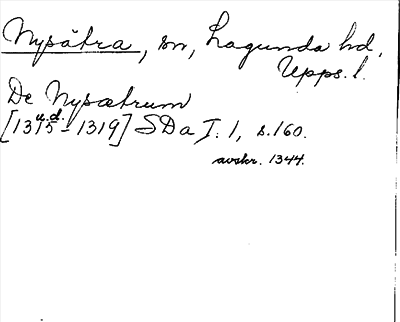 Nysätra, sn, Lagunda hd,
Upps. l.
De Nysætrum
u.d.
[1315-1319] SDa I. 1, s. 160.
avskr. 1344.